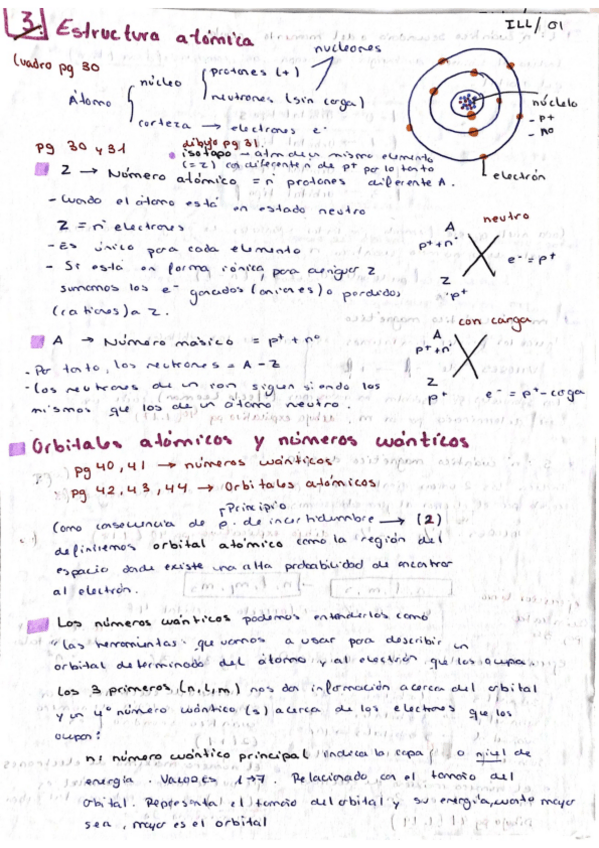 3. Estructura atómica
ILL/01
Cuadro pg 30
nucleones
Átomo
núcleo
protones (+)
neutrones (sin carga)
corteza → electrones e⁻
núcleo
- p+
- nº
electrón
pg 30 y 31
dibujo pg 31.
isótopo → atm de un mismo elemento
(= z) con diferente nº de p+ por lo tanto
diferente A.
Z → Número atómico = nº protones
- Cuando el átomo está en estado neutro
Z = nº electrones
- Es único para cada elemento
- Si está en forma iónica, para averiguar Z
sumamos los e⁻ ganados (aniones) o perdidos
(cationes) a Z.
neutro
A
p+ + nº
e⁻ = p+
Z
p+
A → Número másico = p+ + nº
- Por tanto, los neutrones = A - Z
- Los neutrones de un ion siguen siendo los
mismos que los de un átomo neutro.
con carga
A
p+ + nº
Z
p+
e⁻ = p+ - carga
Orbitales atómicos y números cuánticos
pg 40, 41 → números cuánticos
pg 42, 43, 44 → Orbitales atómicos
Principio
Como consecuencia de p. de incertidumbre → (2)
definiremos orbital atómico como la región del
espacio donde existe una alta probabilidad de encontrar
al electrón.
Los números cuánticos podemos entenderlos como
"las herramientas" que vamos a usar para describir un
orbital determinado del átomo y al electrón que los ocupa.
Los 3 primeros (n, l, m) nos dan información acerca del orbital
y un 4º número cuántico (s) acerca de los electrones que los
ocupan:
n: número cuántico principal, indica la capa o nivel de
energía. Valores 1→7. Relacionado con el tamaño del
orbital. Representa el tamaño del orbital y su energía, cuanto mayor
sea, mayor es el orbital